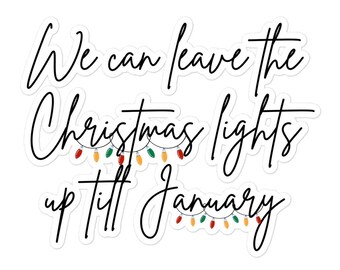 We can leave the
Christmas lights
up till January